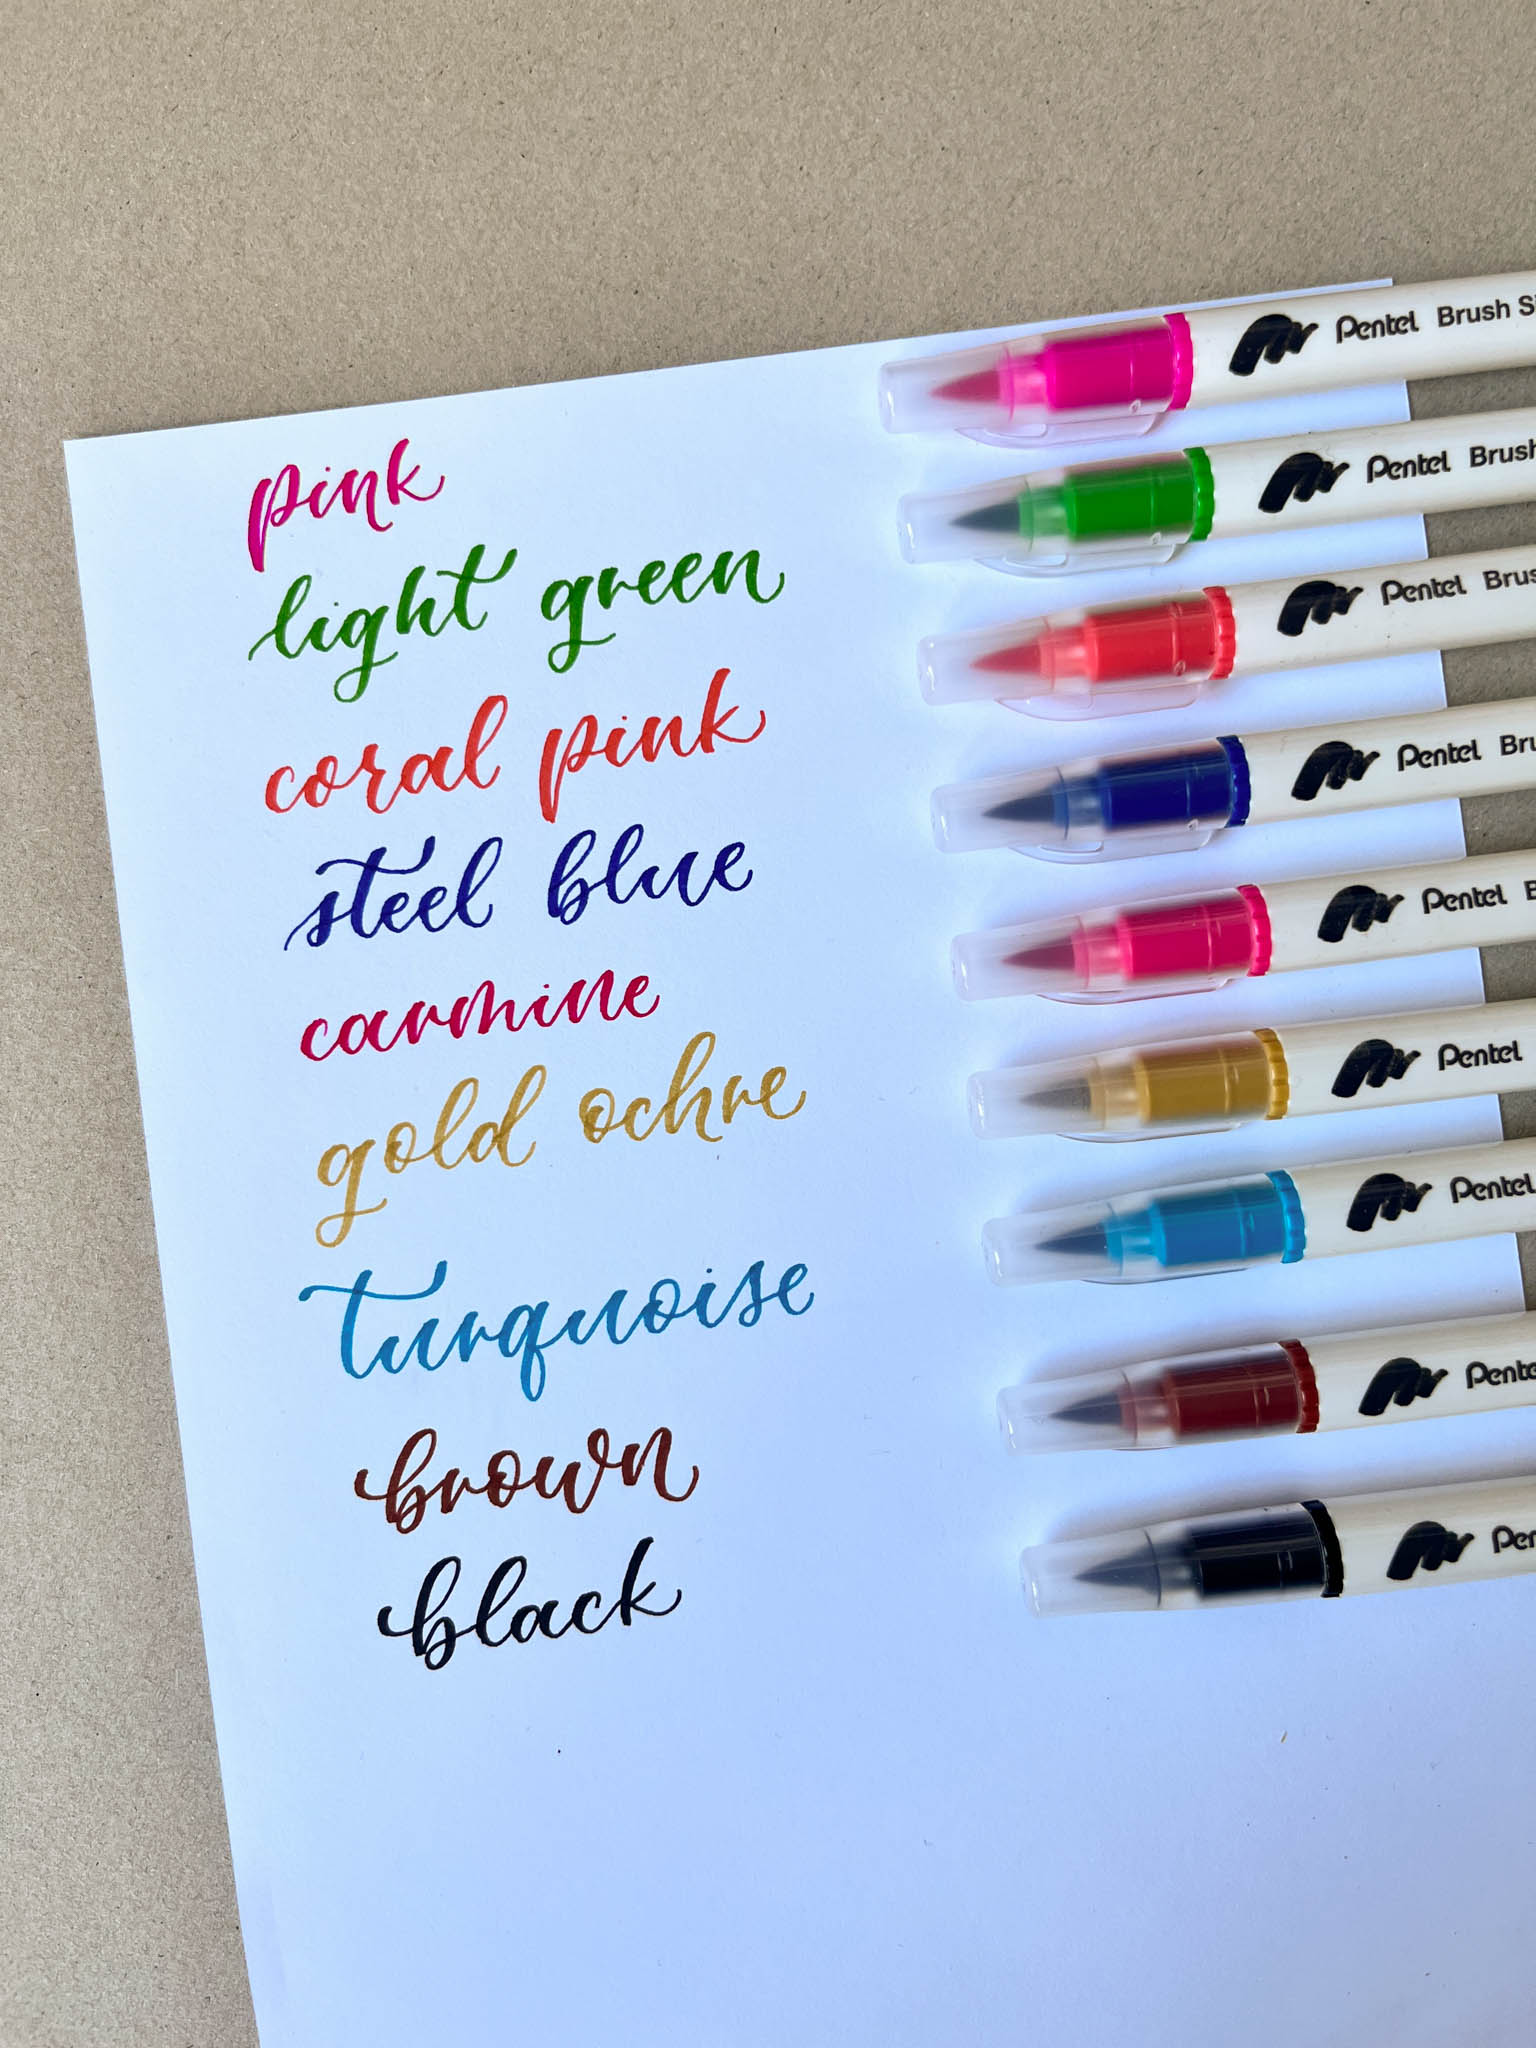 pink
light green
coral pink
steel blue
carmine
gold ochre
turquoise
brown
black
Pentel Brush
Pentel Brush
Pentel
Pentel
Pentel
Pentel
Pentel